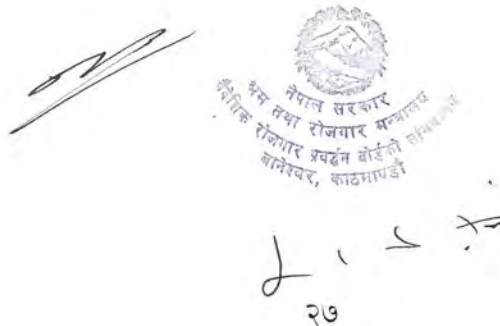 नेपाल सरकार
श्रम तथा रोजगार मन्त्रालय
वैदेशिक रोजगार प्रवर्द्धन बोर्डको
बानेश्वर, काठमाण्डौ
२७